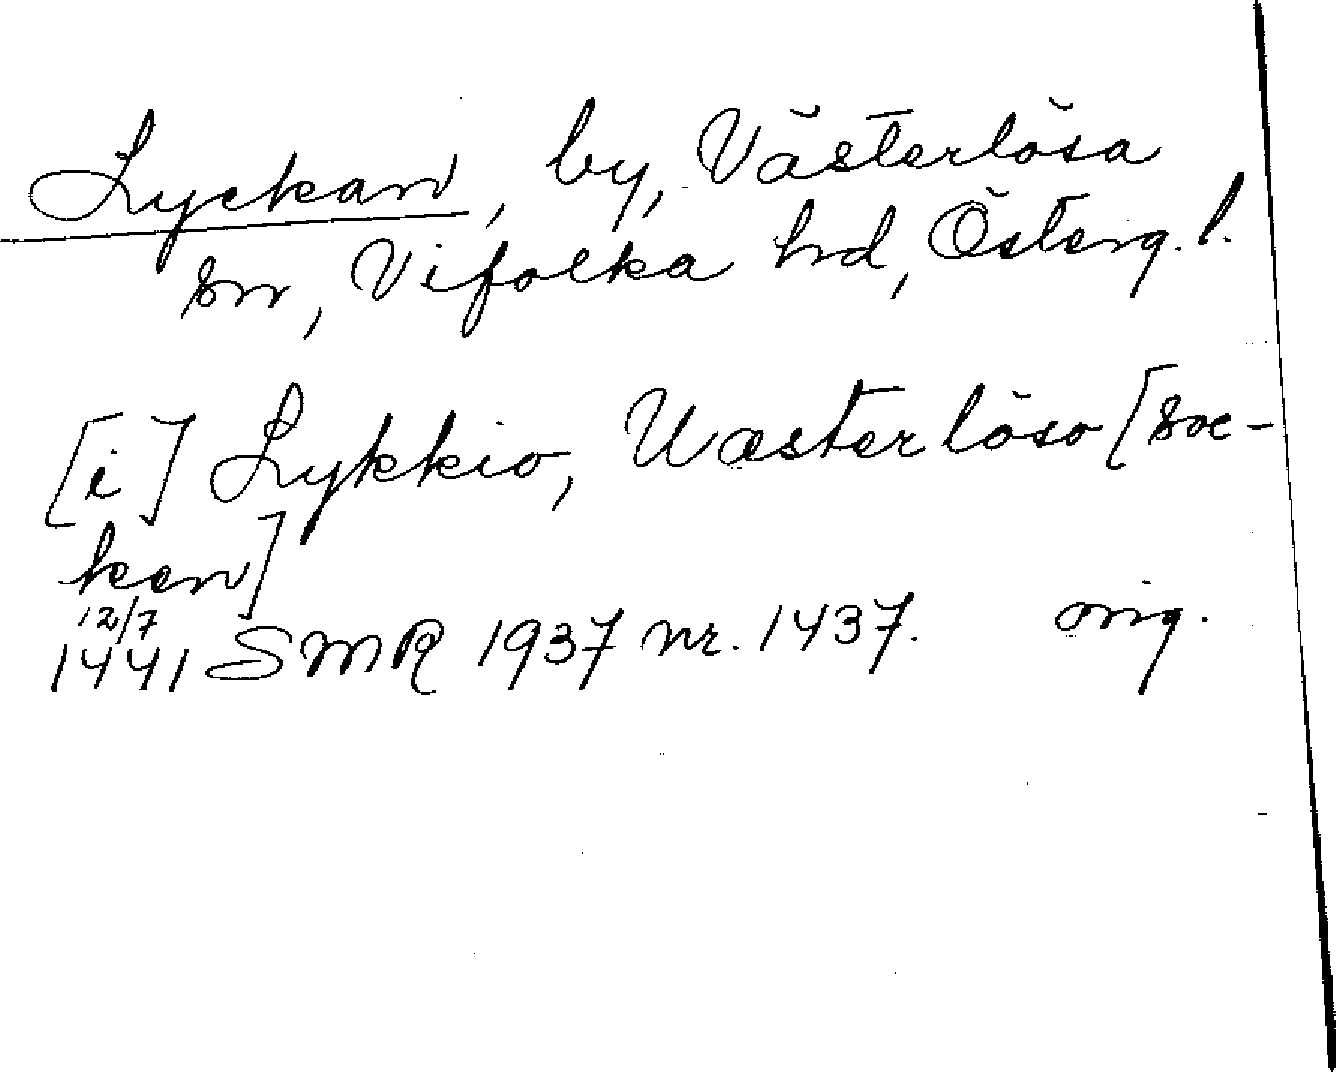 Lyckan, by, Västerlösa
sn, Vifolka hd, Österg. l.
[i] Lykkio, Wæsterlöso [soc-
ken]
12/7
1441 SMR 1937 nr. 1437. orig.